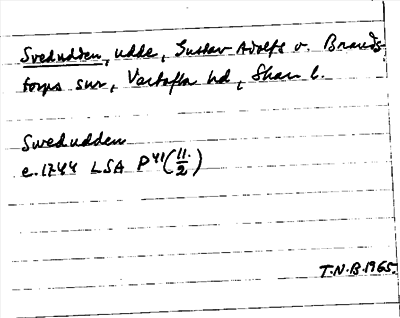 Svedudden, udde, Gustav Adolfs o. Brands-
torps snr, Vartofta hd, Skar l.
Swedudden
e.1744 LSA P41(11/2)
T.N.B.1965.